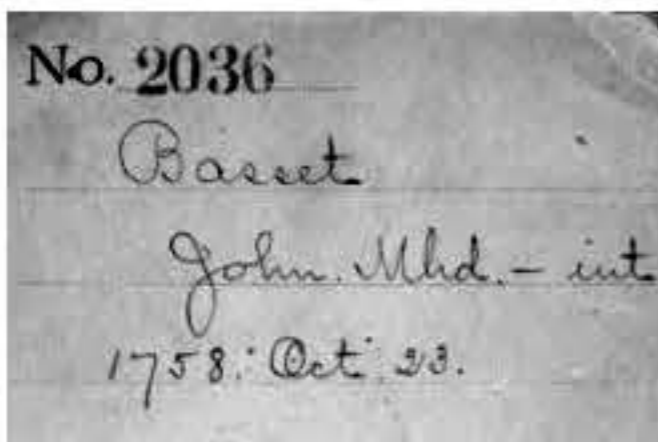 No. 2036
Basset
John. Mhd. - int
1758. Oct. 23.